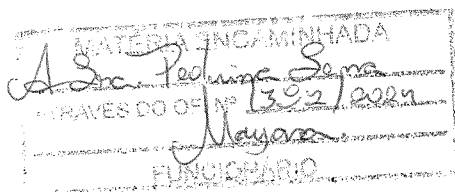 MATÉRIA ENCAMINHADA
A Sra.
ATRAVÉS DO OF. Nº 1302/2024
Mayara.
FUNCIONÁRIO